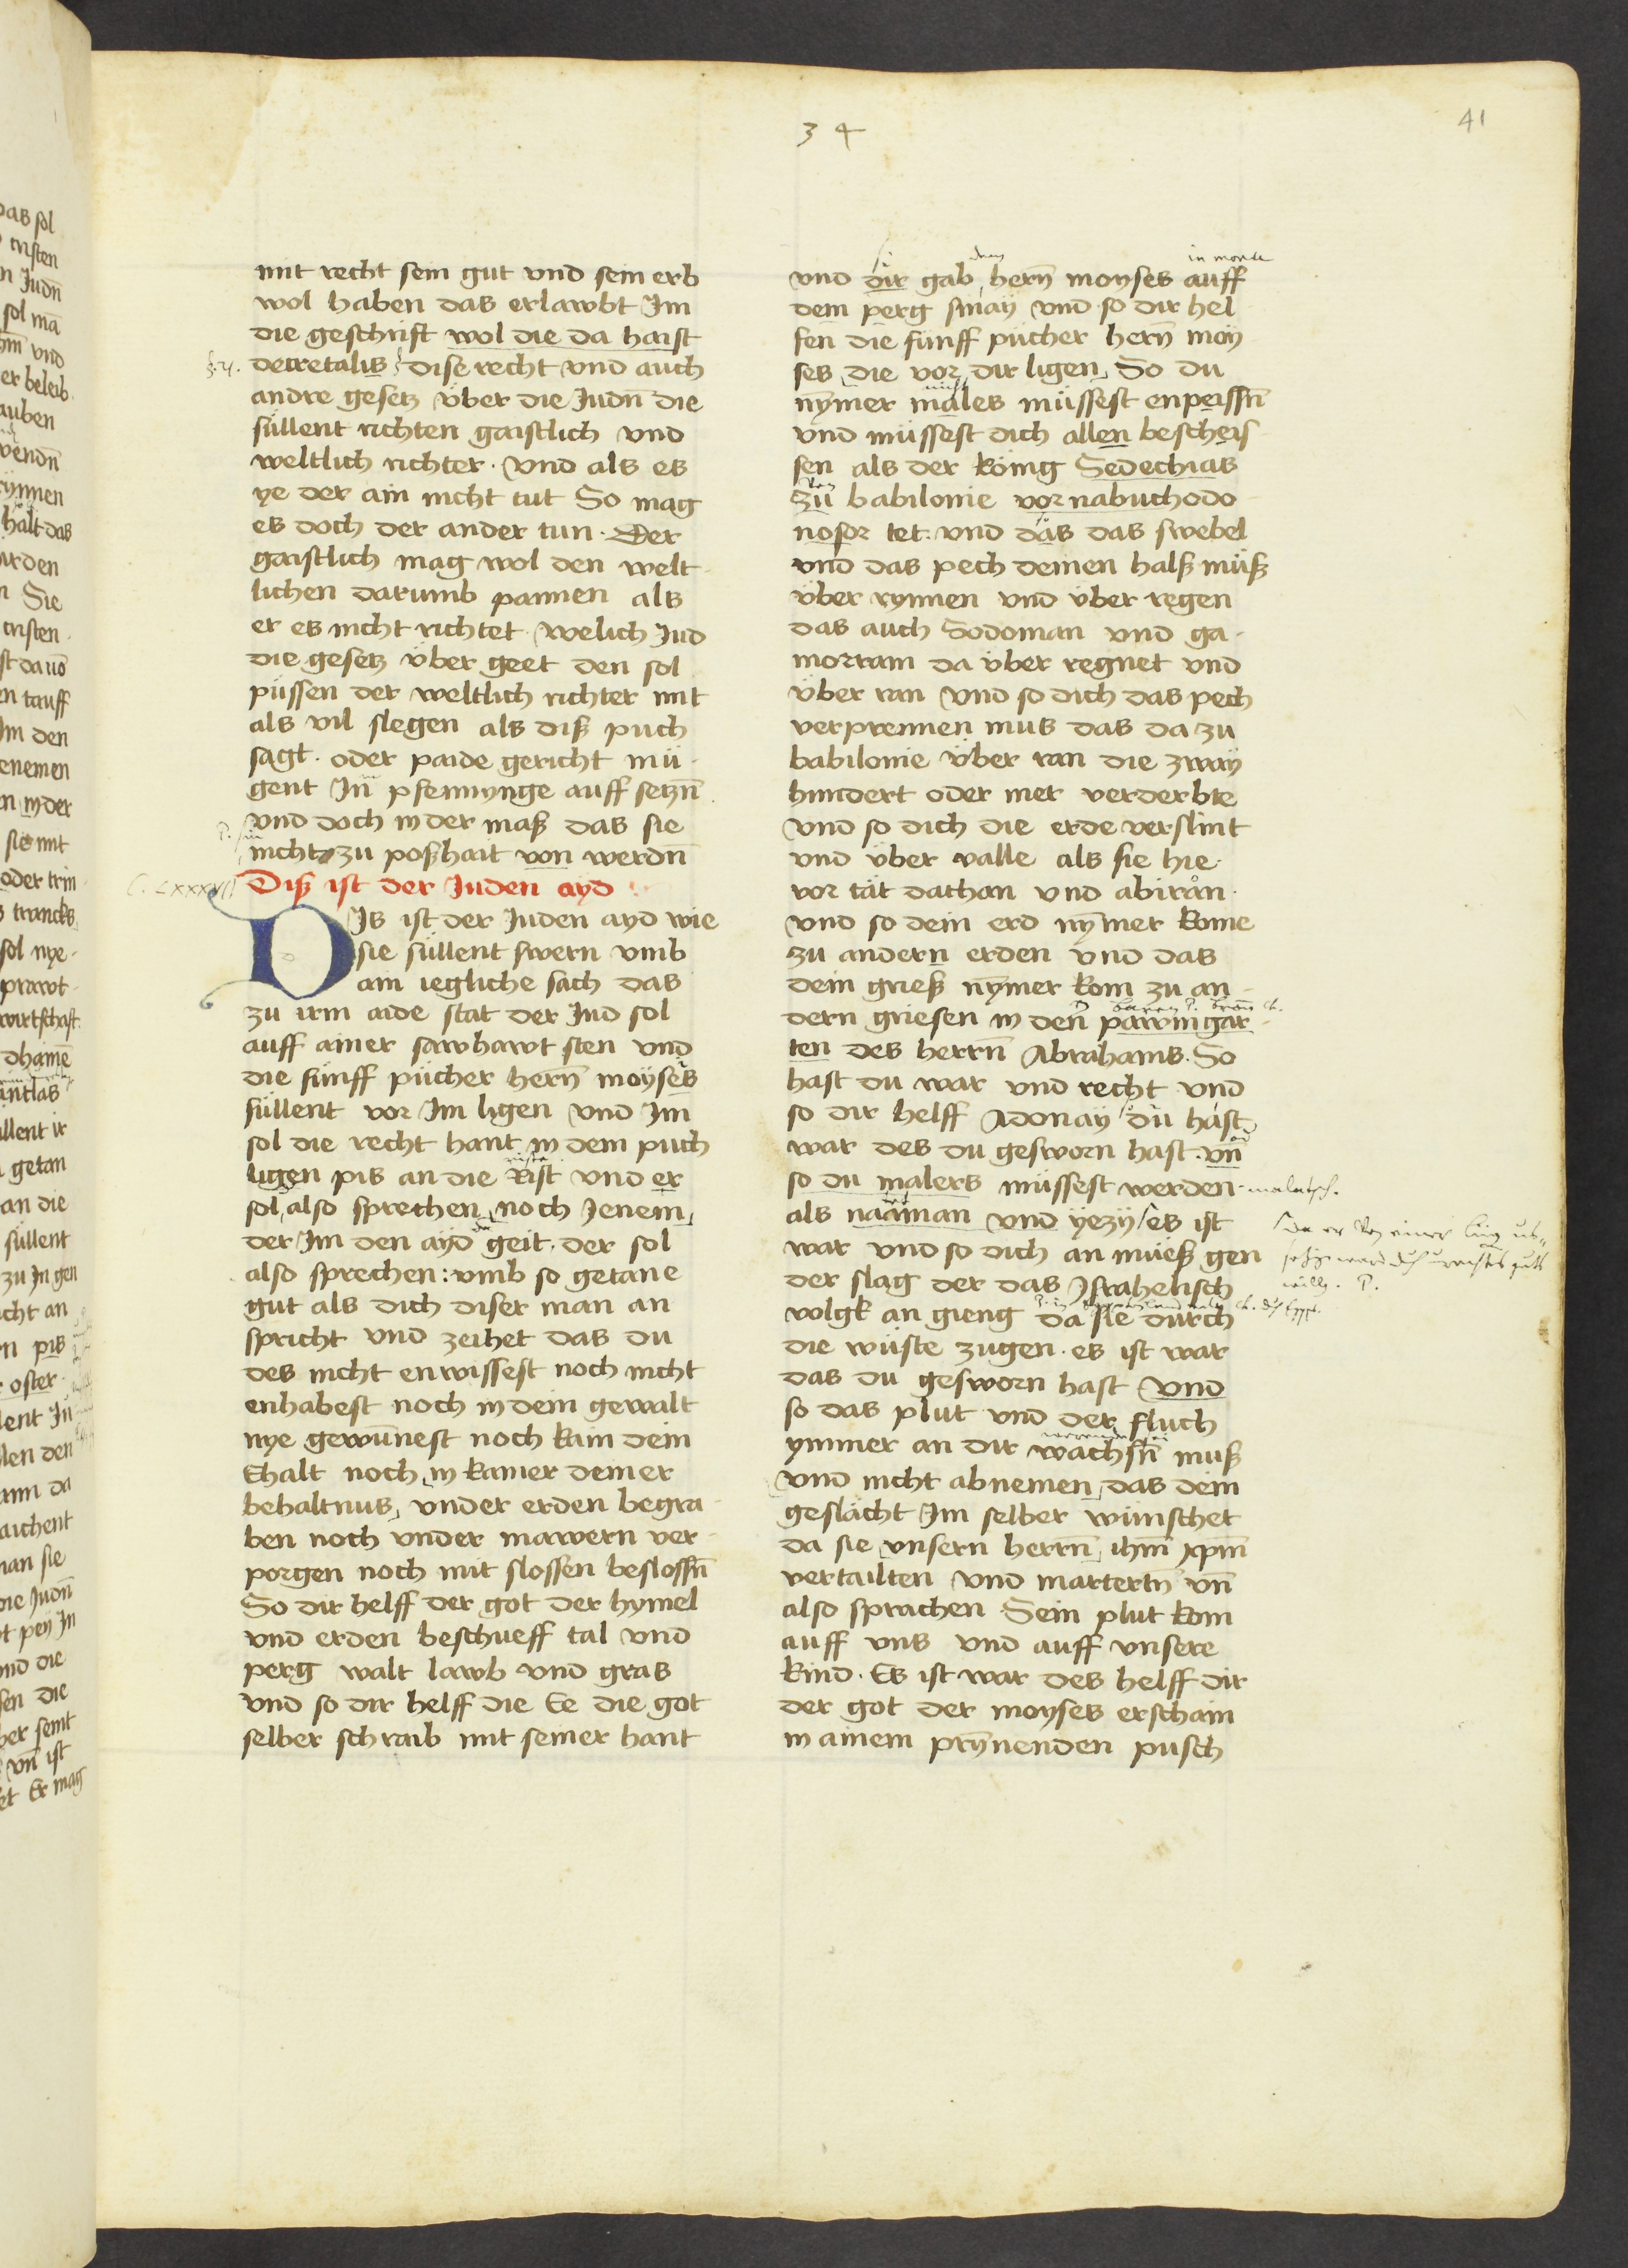 34
41
mit recht sein gut vnd sein erb
wol haben das erlawbt Im
die geschrift wol die da haist
decretalis dise recht vnd auch
andre gesetz über die Judn̄ die
süllent richten gaistlich vnd
weltlich richter · vnd als es
ye der ain nicht tut So mag
es doch der ander tun · Der
gaistlich mag wol den welt
lichen darumb pannen als
er es nicht richtet · welich Jud
die gesetz über geet den sol
püssen der weltlich richter mit
als vil slegen als diß puch
sagt · oder paide gericht mü
gent In pfennynge auff setzn̄
vnd doch in der maß das sie
nicht zu poßhait von werdn̄
C. LXXXVII
Diß ist der Juden ayd
DIs ist der Juden ayd wie
sie süllent swern vmb
ain iegliche sach das
zu irm aide stat der Jud sol
auff ainer sawhawt sten vnd
die fünff pücher hern̄ moyses
süllent vor Im ligen vnd Im
sol die recht hant in dem puch
ligen pis an die Rist vnd er
sol also sprechen noch Jenem
der Im den ayd geit · der sol
also sprechen : vmb so getane
gut als dich diser man an
spricht vnd zeihet das du
des nicht enwissest noch nicht
enhabest noch in dein gewalt
nye gewūnest noch kain dein
Ehalt noch in kamer deiner
behaltnus vnder erden begra
ben noch vnder mawern ver
porgen noch mit slossen beslossn̄
So dir helff der got der hymel
vnd erden beschueff tal vnd
perg walt lawb vnd gras
vnd so dir helff die Ee die got
selber schraib mit seiner hant
in monte
vnd dir gab hern̄ moyses auff
dem perg sinay vnd so dir hel
fen die fünff pücher hern̄ moy
ses die vor dir ligen So du
nȳmer males müssest enpeissn̄
vnd müssest dich allen bescheis
sen als der könig Sedechias
zu babilonie vor nabuchodo
nosor tet · vnd das das swebel
vnd das pech deinen halß müß
über rynnen vnd über regen
das auch Sodoman vnd ga
morram da über regnet vnd
über ran vnd so dich das pech
verprennen mus das da zu
babilonie über ran die zway
hundert oder mer verderbte
vnd so dich die erde verslint
vnd über valle als sie hie
vor tät dathan vnd abiran
vnd so dein erd nȳmer kome
zu andern erden vnd das
dein grieß nȳmer kom zu an
dern griesen in den pawmgar
ten des herrn̄ Abrahams · So
hast du war vnd recht vnd
so dir helff Adonay du hast
war des du gesworn hast · vn̄
so du malers müssest werden
malatsch.
als naaman vnd yezy es ist
war vnd so dich an müeß gen
der slag der das Israhelisch
volgk an gieng da sie durch
die wüste zugen · es ist war
das du gesworn hast vnd
so das plut vnd der fluch
ymmer an dir wachsn̄ muß
vnd nicht abnemen das dein
geslächt Im selber wünschet
da sie vnsern herrn̄ ihm̄ xpm̄
vertailten vnd martertn̄ vn̄
also sprachen Sein plut kom
auff vns vnd auff vnsere
kind · Es ist war des helff dir
der got der moyses erschain
in ainem prȳnenden pusch